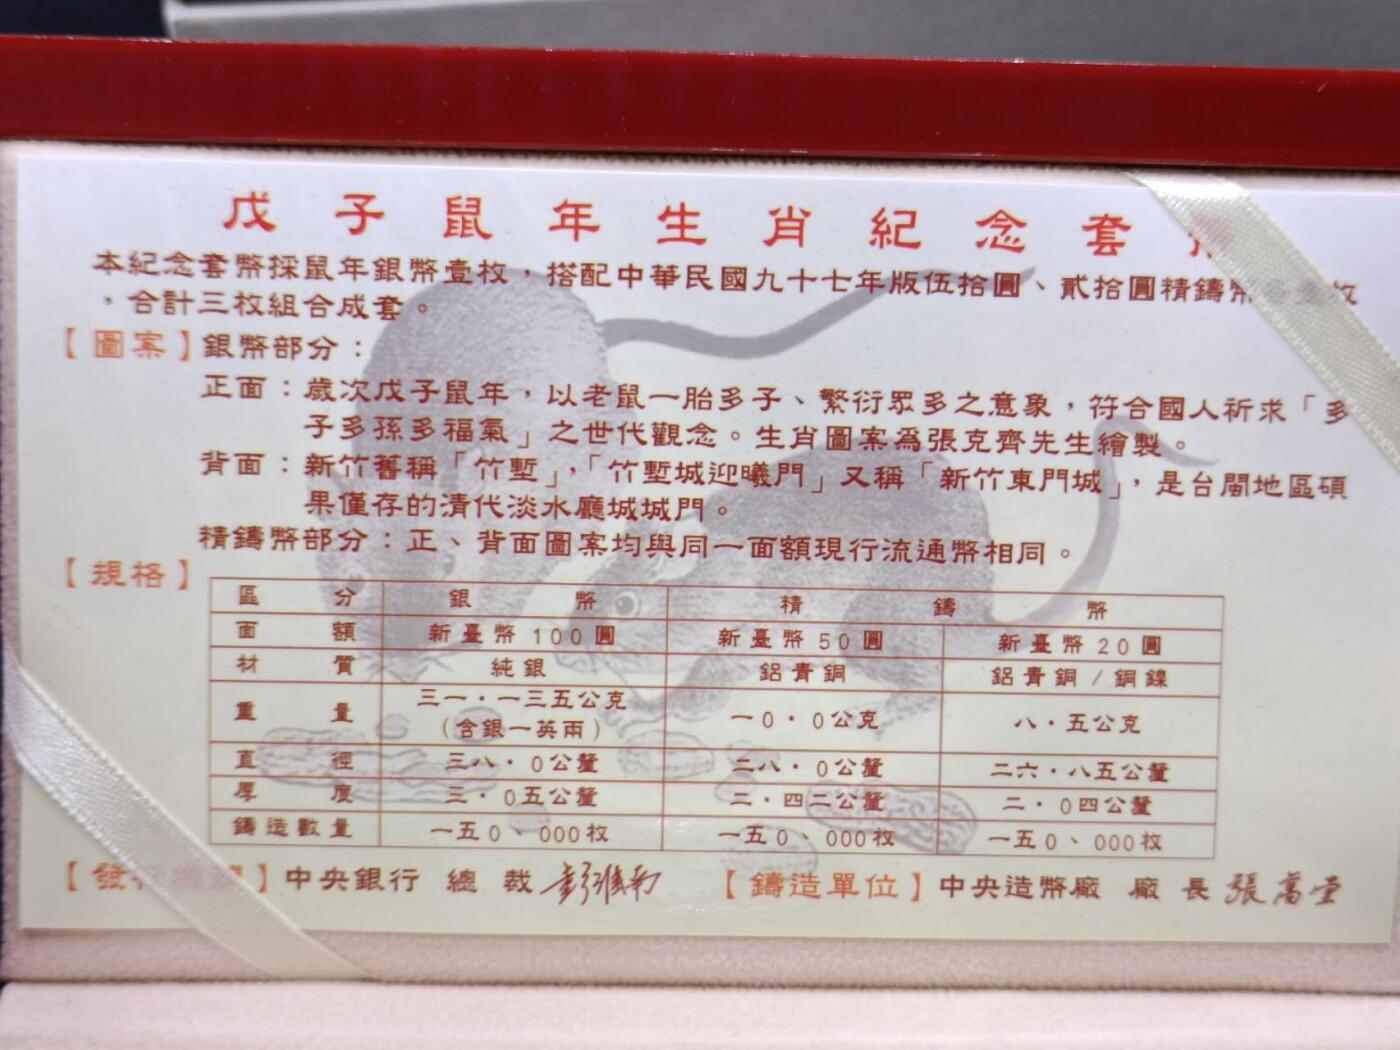 戊子鼠年生肖紀念套
本紀念套幣採鼠年銀幣壹枚，搭配中華民國九十七年版伍拾圓、貳拾圓精鑄幣 枚
，合計三枚組合成套。
【圖案】銀幣部分：
正面：歲次戊子鼠年，以老鼠一胎多子、繁衍眾多之意象，符合國人祈求「多
子多孫多福氣」之世代觀念。生肖圖案為張克齊先生繪製。
背面：新竹舊稱「竹塹」，「竹塹城迎曦門」又稱「新竹東門城」，是台閩地區碩
果僅存的清代淡水廳城城門。
精鑄幣部分：正、背面圖案均與同一面額現行流通幣相同。
【規格】
區分 銀幣 精鑄幣
面額 新臺幣100圓 新臺幣50圓 新臺幣20圓
材質 純銀 鋁青銅 鋁青銅/銅鎳
重量 三一．一三五公克 一0．0公克 八．五公克
(含銀一英兩)
直徑 三八．0公釐 二八．0公釐 二六．八五公釐
厚度 三．0五公釐 二．四二公釐 二．0四公釐
鑄造數量 一五0、000枚 一五0、000枚 一五0、000枚
【發行 】中央銀行 總裁 彭淮南 【鑄造單位】中央造幣廠 廠長